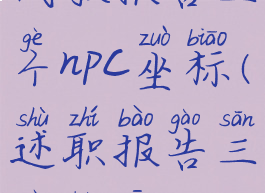 gè zuò biāo
个npc坐标(
shù zhí bào gào sān
述职报告三